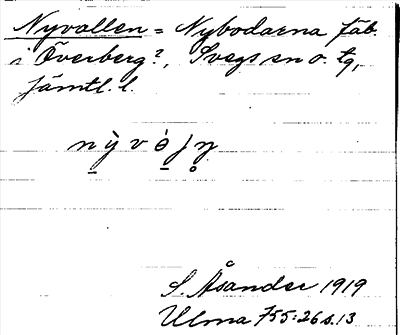 Nyvallen = Nybodarna fäb.
i Överberg?, Svegs sn o. tg,
Jämtl. l.
S. Åsander 1919
Ulma 755:26 s. 13